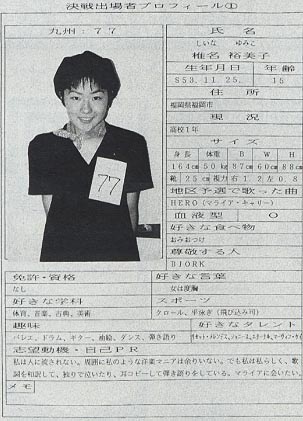 決戦出場者プロフィール①
九州:77
氏 名
しいな ゆみこ
椎名 裕美子
生年月日 年齢
S53.11.25. 15
住 所
福岡県福岡市
現 況
高校1年
サイズ
身長 体重 B W H
164cm 50kg 87cm 60cm 88cm
靴 25cm 視力 右1.2 左0.8
地区予選で歌った曲
HERO(マライア・キャリー)
血液型 O
好きな食べ物
おみおつけ
尊敬する人
BJORK
77
免許・資格 好きな言葉
なし 女は度胸
好きな学科 スポーツ
体育、音楽、古典、美術 クロール、平泳ぎ(飛び込み可)
趣味 好きなタレント
バレエ、ドラム、ギター、油絵、ダンス、弾き語り
志望動機・自己PR
私は人に流されない。周囲に私のような洋楽マニアは余りいない。でも私は私らしく、歌
詞を和訳して、独りで泣いたり、耳コピーして弾き語りをしている。マライアに会いたい。
メモ